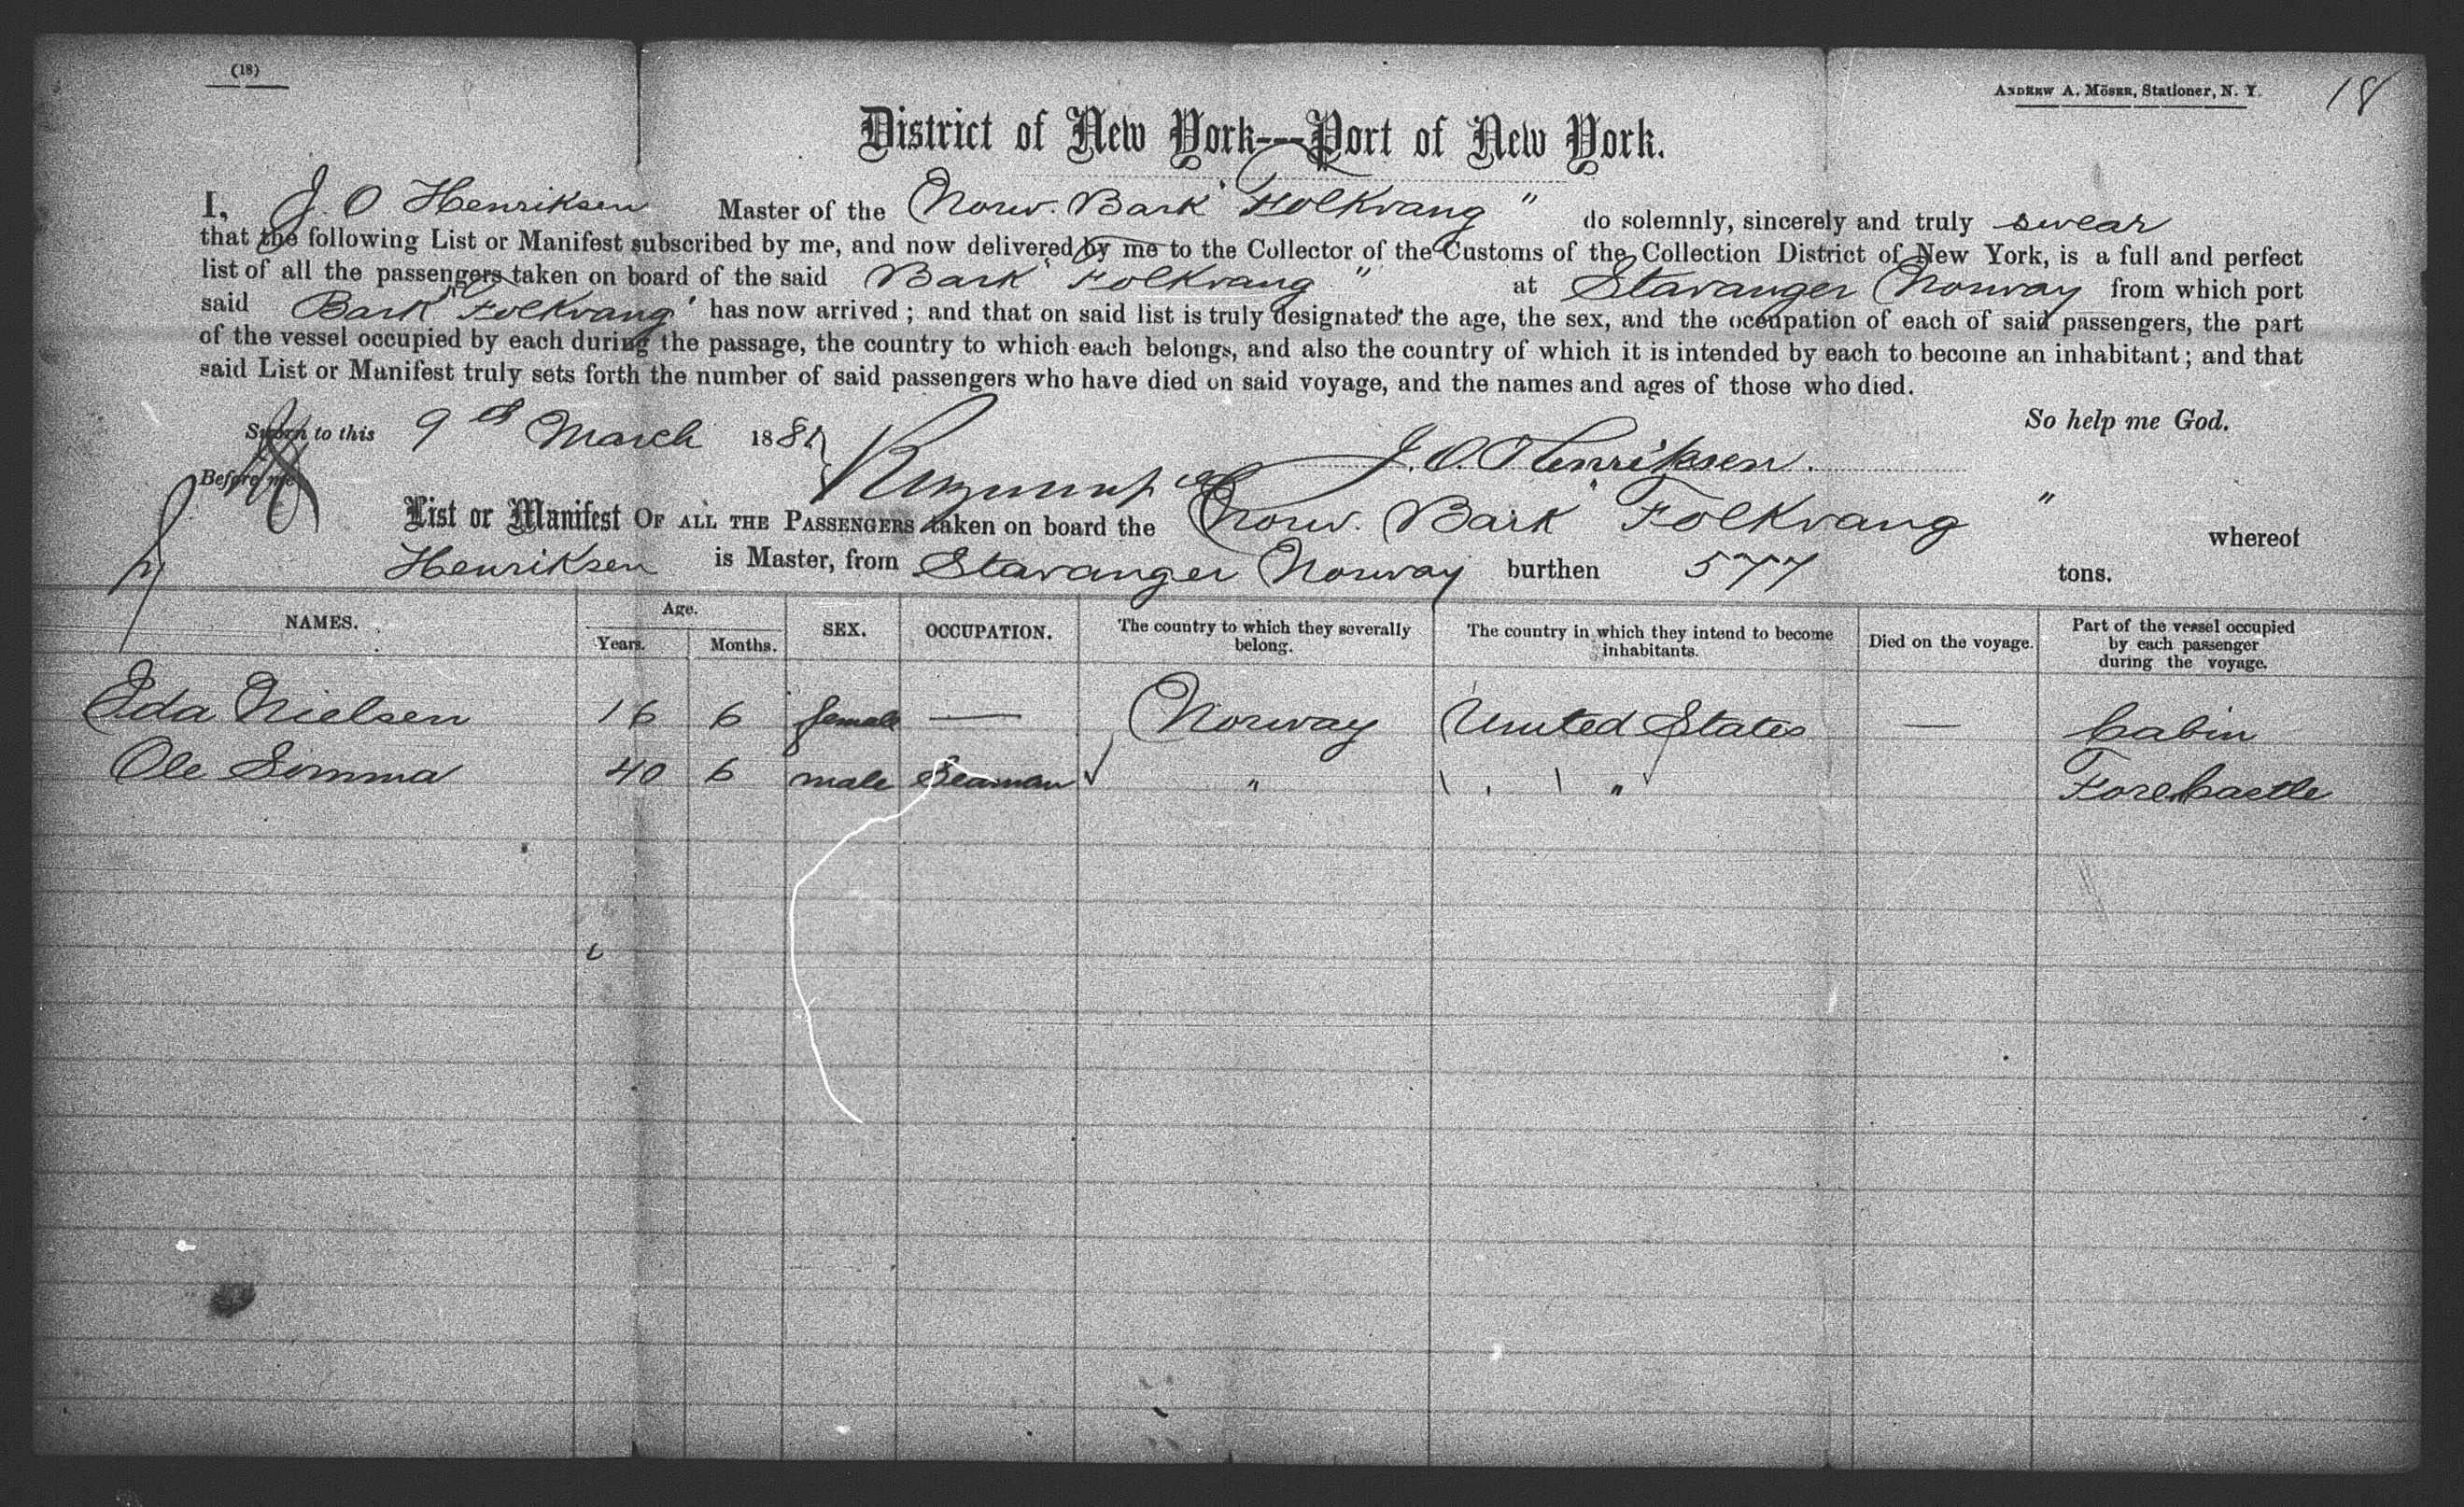 (18)
Andrew A. Möser, Stationer, N. Y.
18
District of New York---Port of New York.
I, J. O Henriksen Master of the Norw. Bark "Folkvang" do solemnly, sincerely and truly swear
that the following List or Manifest subscribed by me, and now delivered by me to the Collector of the Customs of the Collection District of New York, is a full and perfect
list of all the passengers taken on board of the said Bark "Folkvang" at Stavanger Norway from which port
said Bark "Folkvang" has now arrived; and that on said list is truly designated the age, the sex, and the occupation of each of said passengers, the part
of the vessel occupied by each during the passage, the country to which each belongs, and also the country of which it is intended by each to become an inhabitant; and that
said List or Manifest truly sets forth the number of said passengers who have died on said voyage, and the names and ages of those who died.
So help me God.
Sworn to this 9th March 188
J. O. Henriksen.
Before me
List or Manifest OF ALL THE PASSENGERS taken on board the Norw. Bark "Folkvang" whereof
Henriksen is Master, from Stavanger Norway burthen 577 tons.
NAMES. Age. Years. Months. SEX. OCCUPATION. The country to which they severally belong. The country in which they intend to become inhabitants. Died on the voyage. Part of the vessel occupied by each passenger during the voyage.
Ida Nielsen 16 6 female — Norway United States — Cabin
Ole Somma 40 6 male Seaman " " " Forecastle